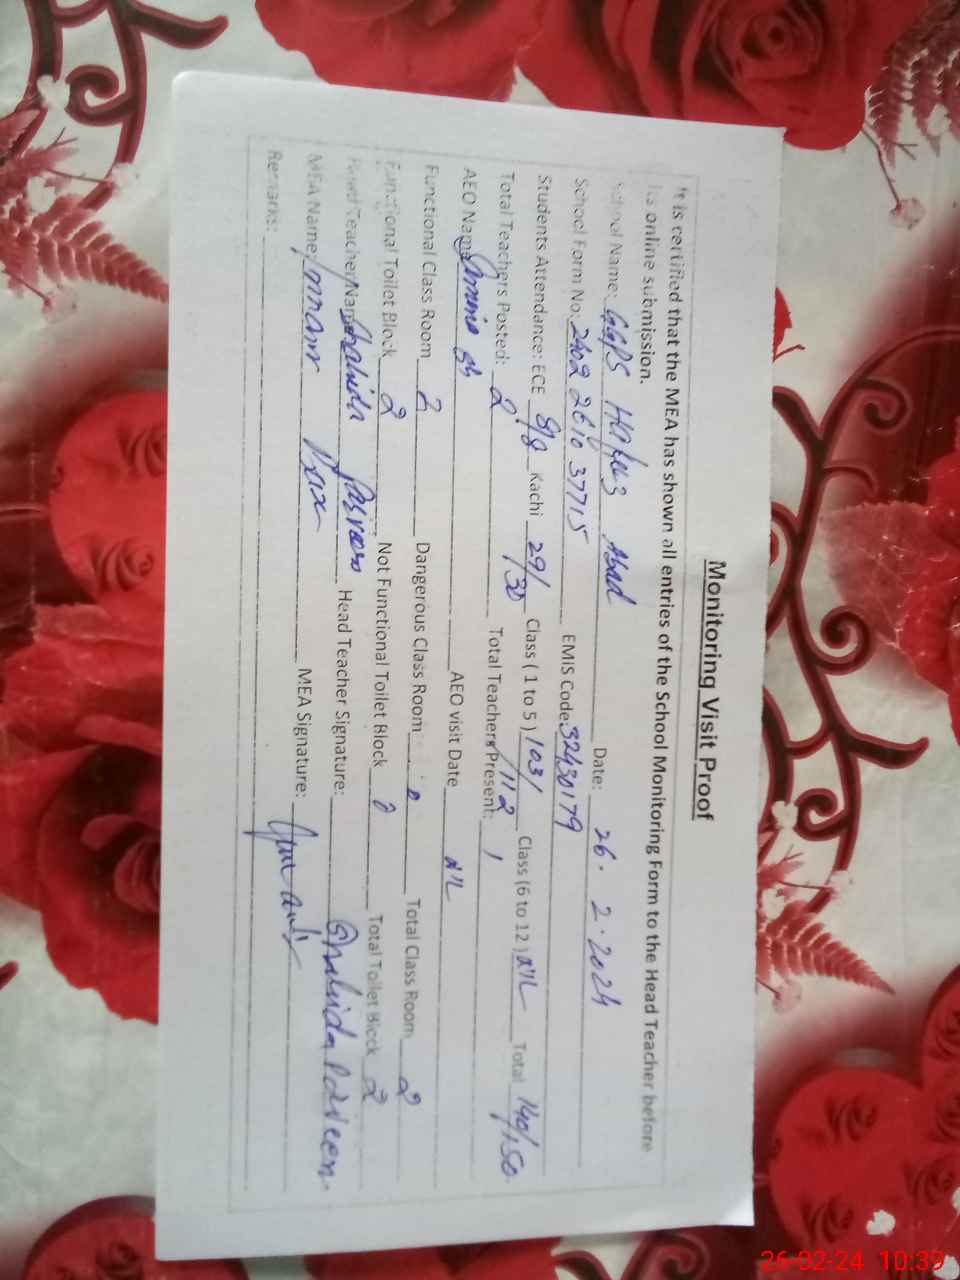 Monitoring Visit Proof
It is certified that the MEA has shown all entries of the School Monitoring Form to the Head Teacher before
its online submission.
School Name: GGPS Abad Date: 26.2.2024
School Form No: 2402 2610 37715 EMIS Code: 32430179
Students Attendance: ECE 8/8 Kachi 29/30 Class ( 1 to 5 ) 103/112 Class (6 to 12 ) NIL Total 140/150
Total Teachers Posted: 2 Total Teachers Present: 1
AEO Name AEO visit Date NIL
Functional Class Room 2 Dangerous Class Room 0 Total Class Room 2
Functional Toilet Block 2 Not Functional Toilet Block 0 Total Toilet Block 2
Head Teacher Name Shahida Parveen Head Teacher Signature: Shahida Parveen.
MEA Name: Imran MEA Signature:
Remarks:
26-02-24 10:39